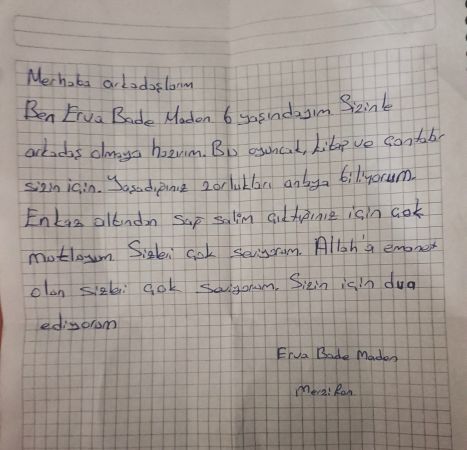 Merhaba arkadaşlarım
Ben Erva Bade Maden 6 yaşındayım Sizinle
arkadaş olmaya hazırım. Bu oyuncak, kitap ve çantalar
sizin için. Yaşadığınız zorlukları anlaya biliyorum.
Enkaz altından sap salim çıktığınız için çok
mutluyum Sizleri çok seviyorum. Allah'a emanet
olan sizleri çok seviyorum. Sizin için dua
ediyorum
Erva Bade Maden
Merzifon